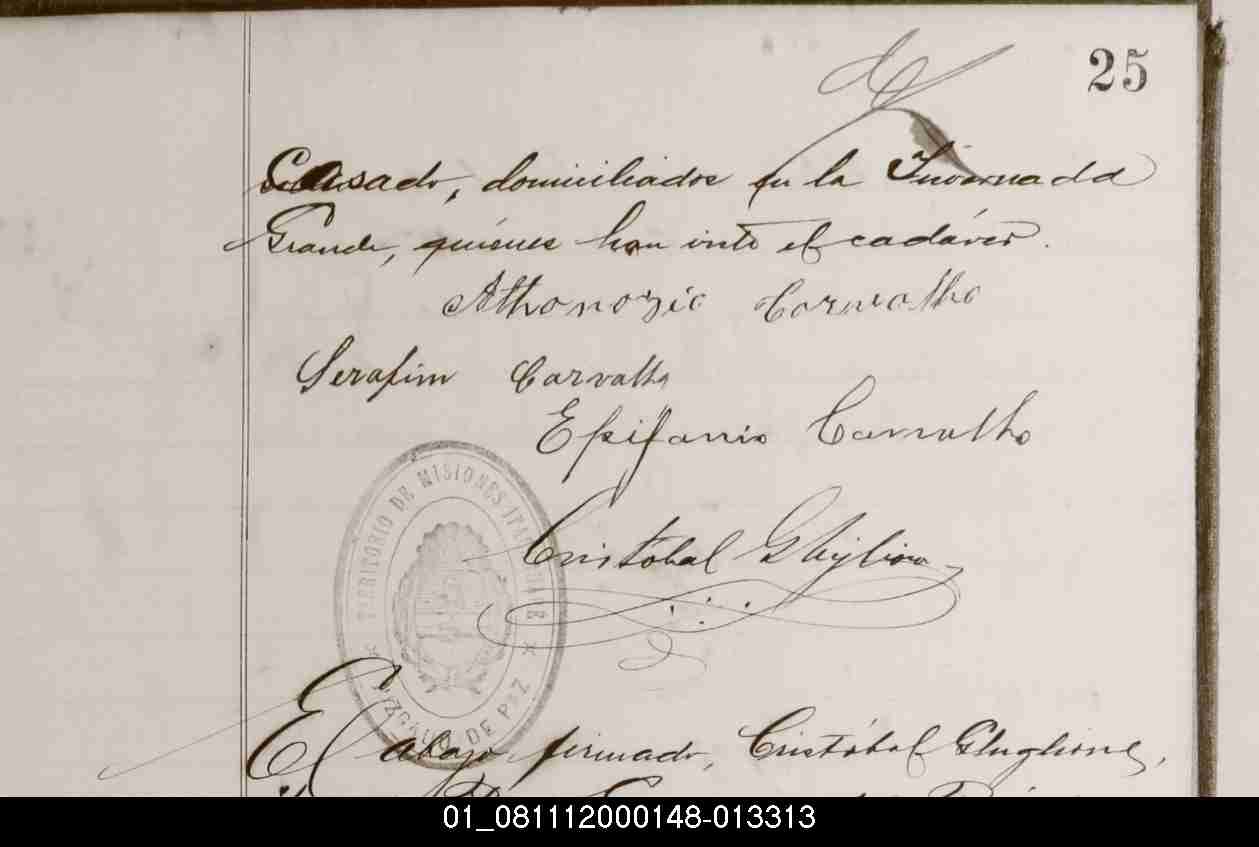 25
Casado, domiciliados en la Invernada
Grande, quiénes han visto el cadáver.
Athonozio Carvalho
Serafim Carvalho
Epifanio Carvalho
TERRITORIO DE MISIONES
Cristobal Ghiglione
JUZGADO DE PAZ
El abajo firmado, Cristóbal Ghiglione,
01_081112000148-013313